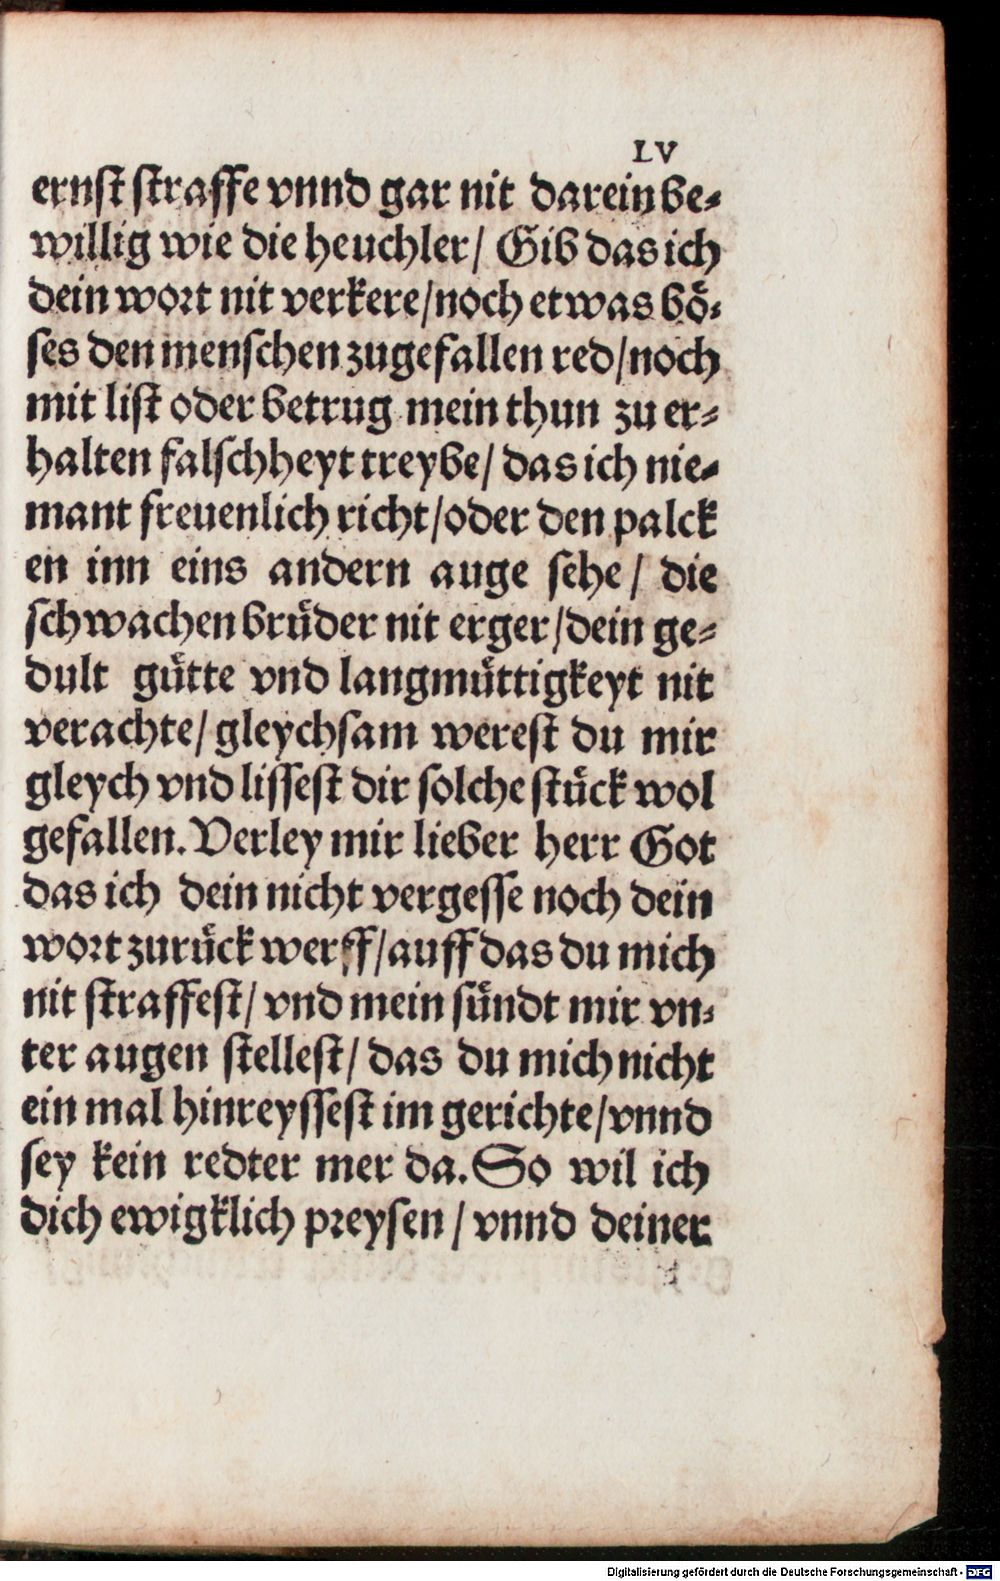 LV
ernst straffe vnnd gar nit darein be-
willig wie die heuchler/ Gib das ich
dein wort nit verkere/noch etwas bö-
ses den menschen zugefallen red/noch
mit list oder betrug mein thun zu er-
halten falschheyt treybe/ das ich nie-
mant freuenlich richt/oder den palck
en inn eins andern auge sehe/ die
schwachen bruͤder nit erger/dein ge-
dult guͤtte vnd langmuͤttigkeyt nit
verachte/ gleychsam werest du mir
gleych vnd lissest dir solche stuͤck wol
gefallen. Verley mir lieber herr Got
das ich dein nicht vergesse noch dein
wort zuruͤck werff/auff das du mich
nit straffest/ vnd mein suͤndt mir vn-
ter augen stellest/ das du mich nicht
ein mal hinreyssest im gerichte/vnnd
sey kein redter mer da. So wil ich
dich ewigklich preysen/ vnnd deiner
Digitalisierung gefördert durch die Deutsche Forschungsgemeinschaft - DFG